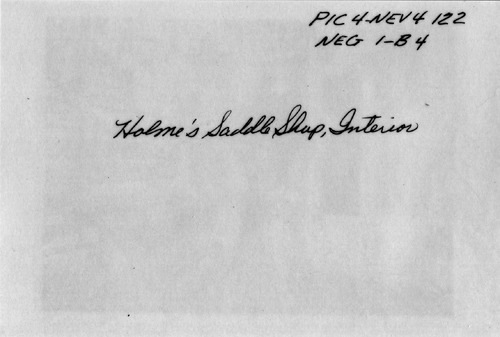 PIC 4-NEV4 122
NEG 1-B4
Holme's Saddle Shop, Interior